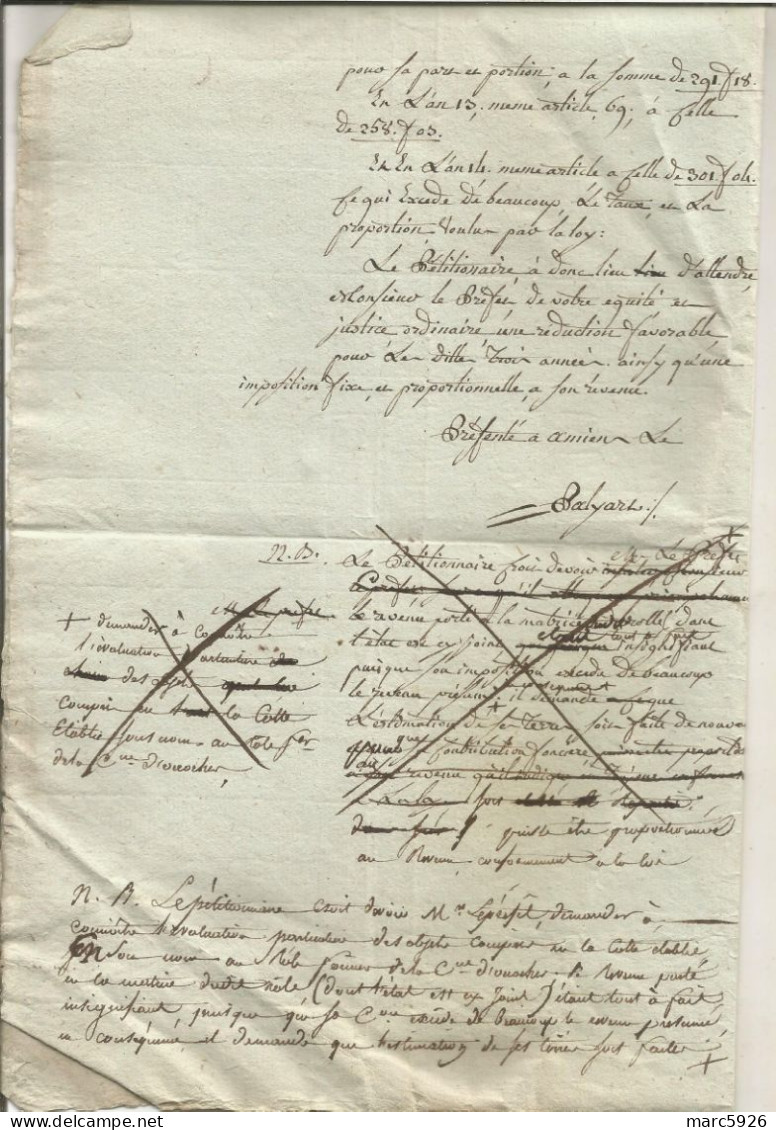 pour sa part et portion, a la somme de 291.f 18.
En L'an 13, meme article, 69, à celle
de 258. f 03.
Et En L'an 14. meme article a celle de 301. f 04.
ce qui Excede de beaucoup, Le Taux, et La
proportion Voulu par la loy:
Le Pétitionaire, à donc lieu d'attendre,
Monsieur le Préfet de votre equité et
justice ordinaire une réduction favorable
pour Les ditte trois année. ainsy qu'une
imposition fixe, et proportionnelle, a son revenu.
Présenté a amiens Le
Palyart
N. B. Le Pétitionnaire croit devoir Mr Le Préfet
le revenu porté à la matrice du rolle dans
l'état est cy joint étant tout à fait insignifiant
puisque son imposition excede de beaucoup
le revenu présumé il demande
L'estimation de ses Terres soit faite de nouveau
que sa Contribution fonciere
puisse être proportionnée
au Revenu conformement a la loi
+ demander à connoitre
l'évaluation particuliere
des objets
compris en la Cotte
Etablie sous nom au Role for
de la Cne d'ouocher,
N. B. Le pétitionnaire croit devoir Mr Le préfet, demander à
connoitre l'évaluation particuliere des objets compris en la Cotte établie
En son nom au Role foncier de la Cne d'ouocher. Le Revenu porté
en la matrice dudit rôle (dont l'état est cy joint) étant tout à fait
insignifiant, puisque que sa Con excede de Beaucoup le revenu présumé,
en conséquence il demande que l'estimation de ses terres soit faitte +
marc5926